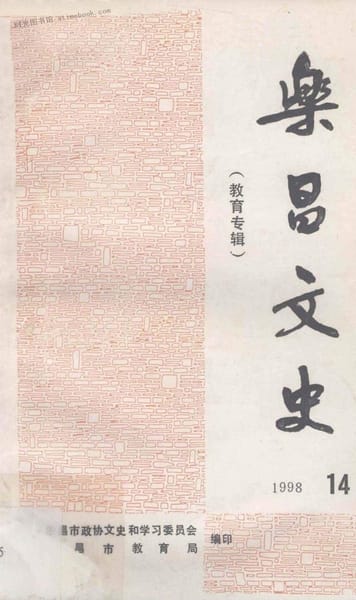 时光图书馆 www.atimebook.com
樂昌文史
（教育专辑）
1998 14
昌市政协文史和学习委员会
昌市教育局
编印